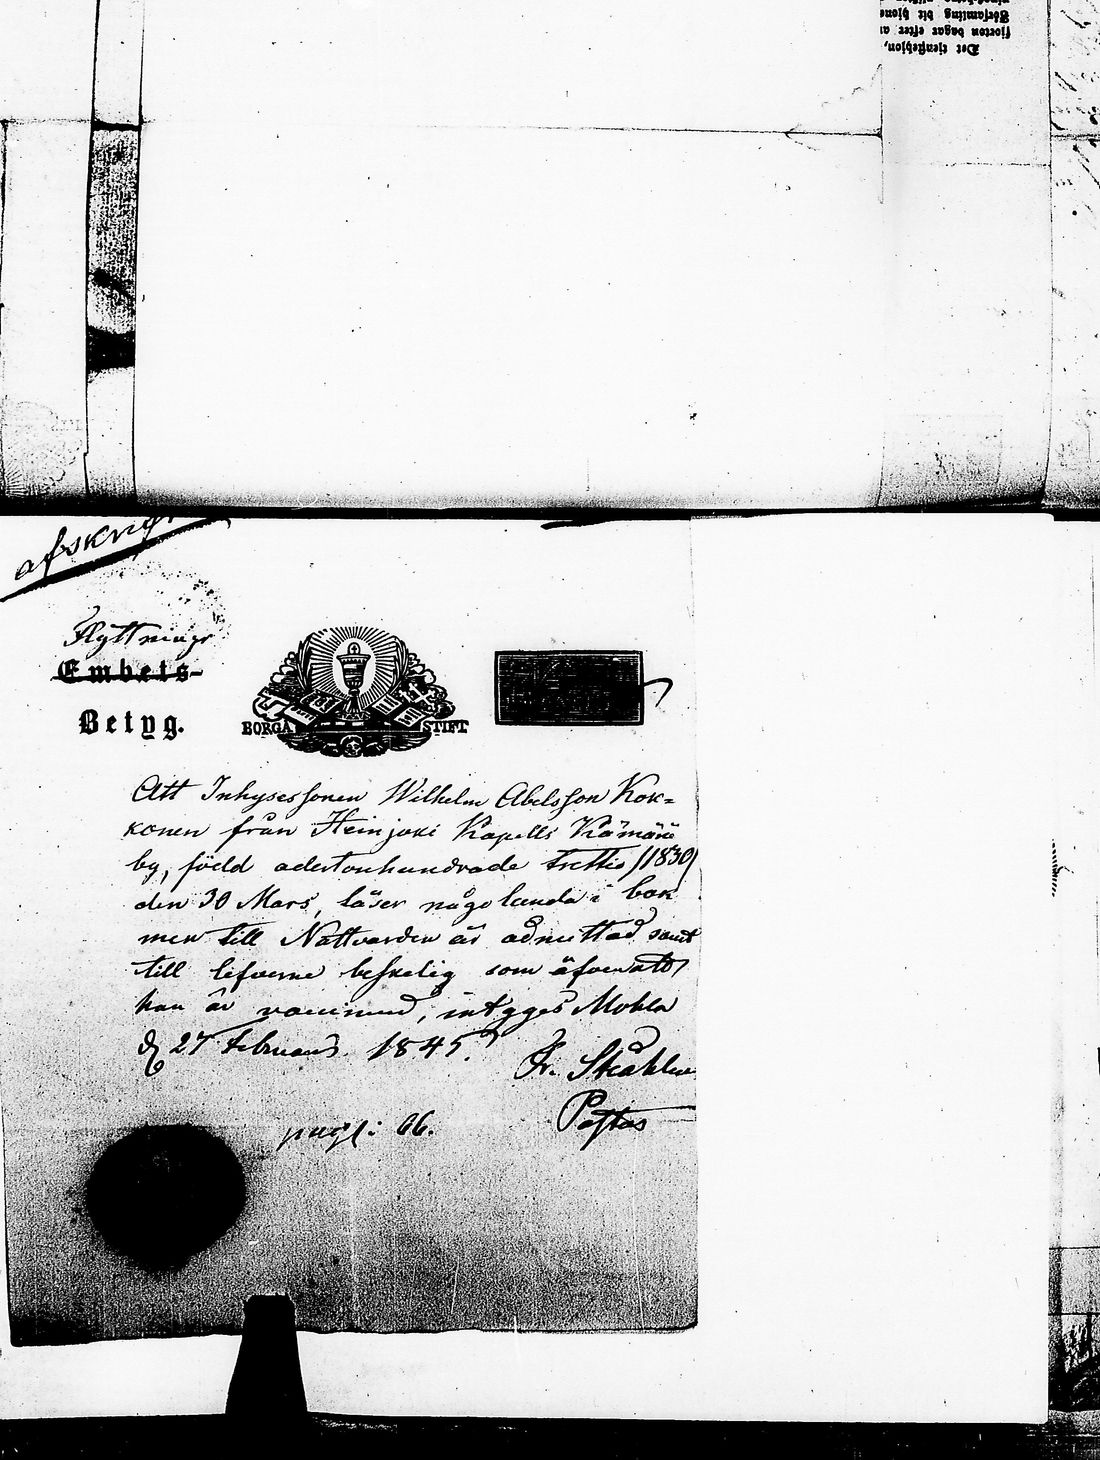 Det tjenstehjon,
fjorton dagar efter a
Församling blt hjone
afskrift
Flyttnings
Embets-
Betyg.
BORGÅ STIFT
Att Inhysessonen Wilhelm Abelsson Kok=
konen från Heinjoki Kapells Kämärä
by, född adertonhundrade trettio /1830/
den 30 Mars, läser någolunda i bok
men till Nattvarden är admitterad samt
till lefverne beskelig som äfven att
han är vaccinerad, intygges Mohla
d 27 Februarii 1845.
Fr. Stråhlm
Pastor
pag: 66.